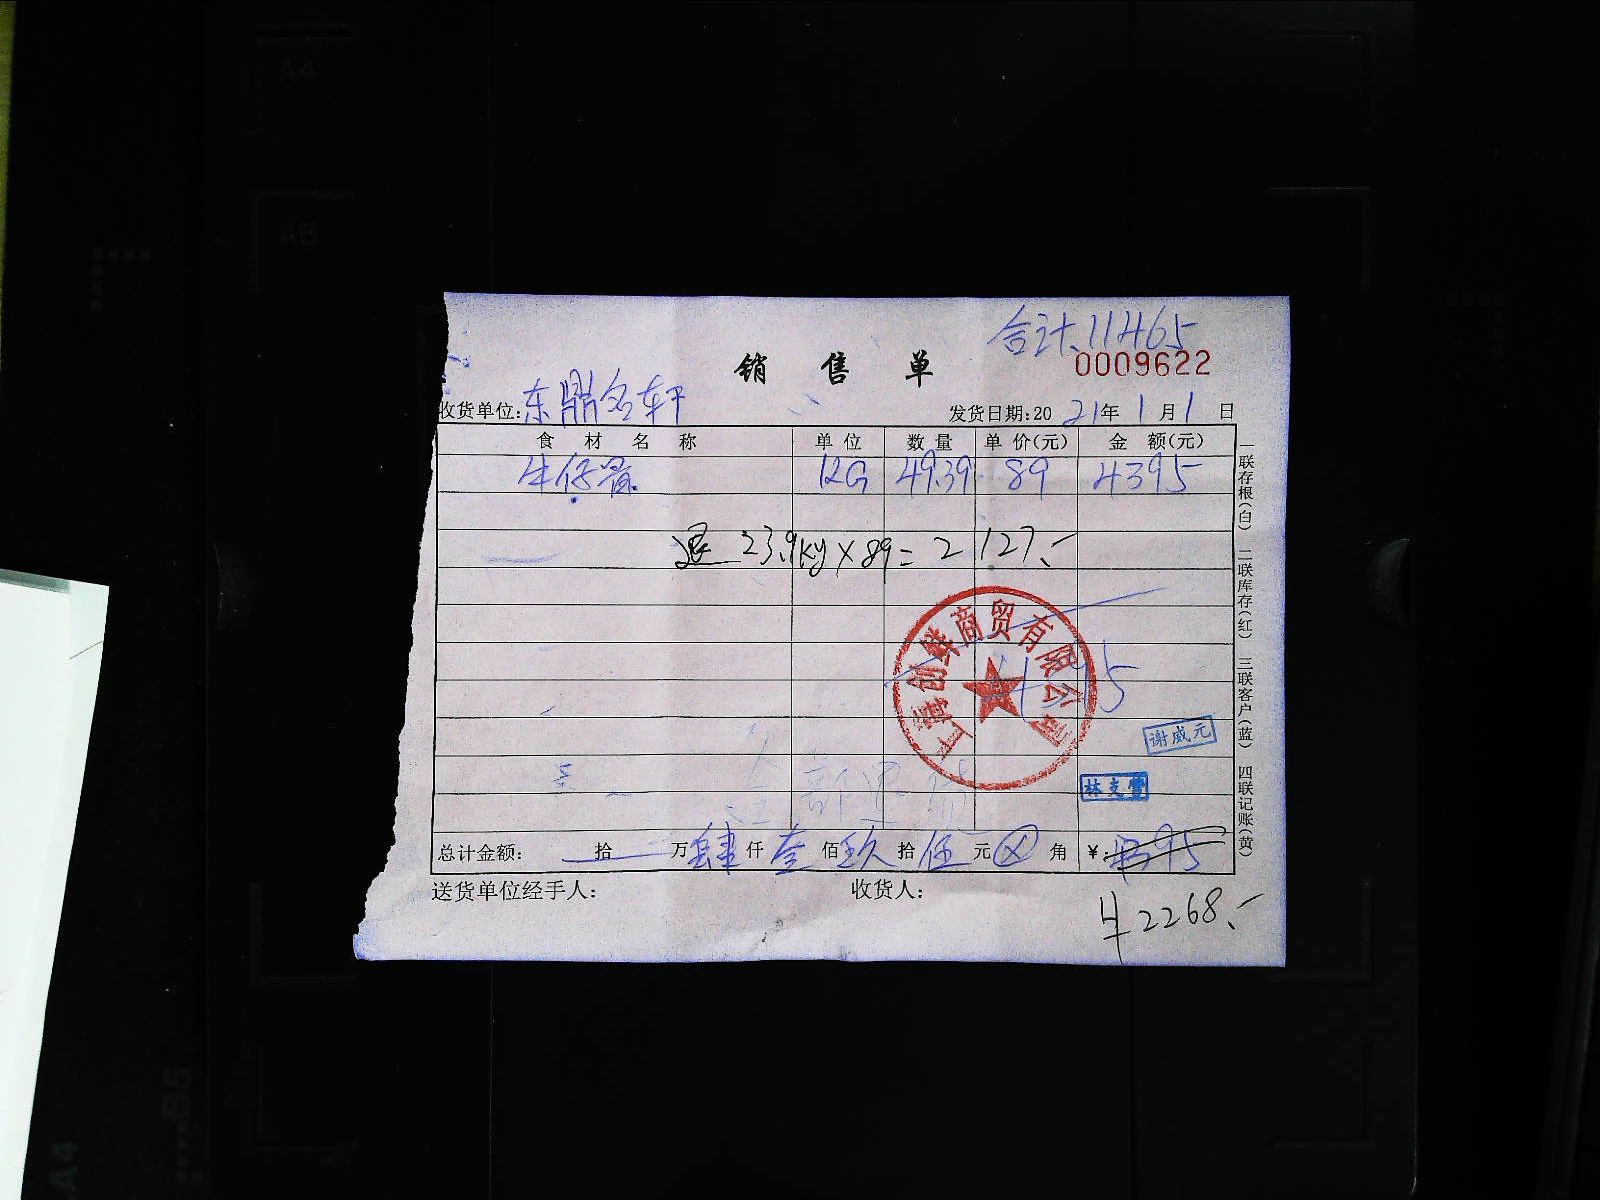 合计、11465
销售单
0009622
收货单位:东鼎名轩 发货日期:2021年1月1日
食材名称 单位 数量 单价(元) 金额(元)
牛仔骨 KG 49.39 89 4395
退 23.9kg×89=2127.-
上海创鲜商贸有限公司
谢威元
总计金额: 拾 万肆仟叁佰玖拾伍元⊗角 ¥:4395
送货单位经手人: 收货人:
¥2268.-
一联存根(白) 二联库存(红) 三联客户(蓝) 四联记账(黄)
A4
A5
B5
A4